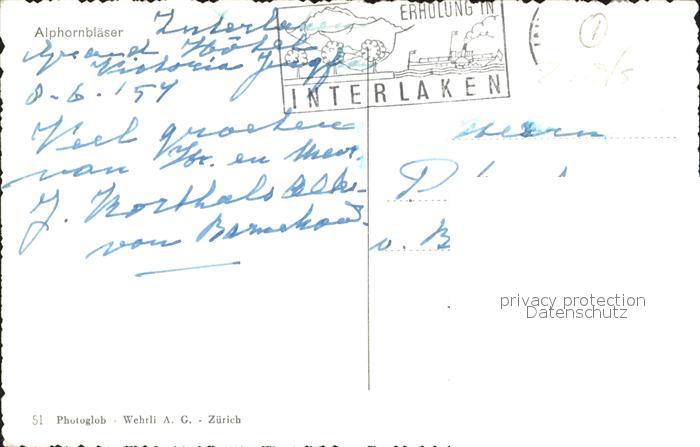 Alphornbläser
Interlaken
Grand Hôtel
Victoria Jungfr
8-6-'54
Veel groeten
van Hr. en Mevr.
J. Korthals Altes-
von Barnekow.
ERHOLUNG IN
INTERLAKEN
1
Herrn
v. B
privacy protection
Datenschutz
51 Photoglob - Wehrli A. G. - Zürich